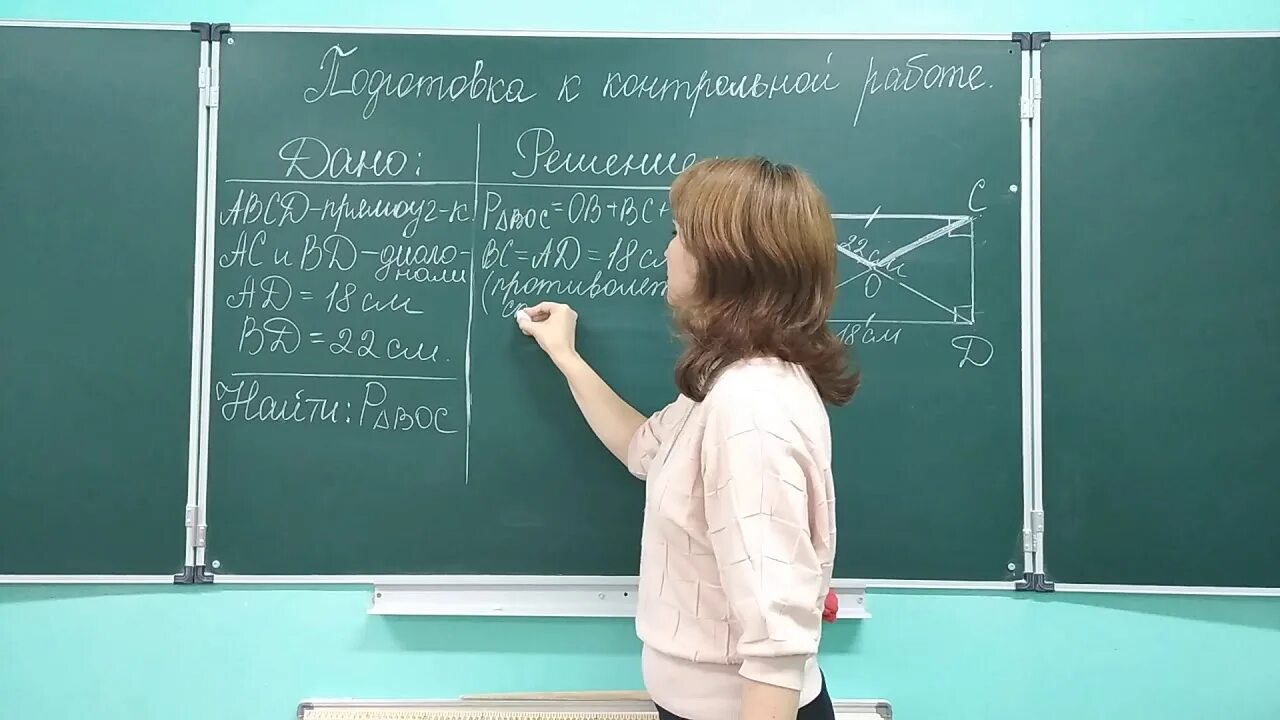 Подготовка к контрольной работе.
Дано:
ABCD-прямоуг-к
AC и BD-диаго-
нали
AD = 18 см
BD = 22 см.
Найти: P△BOC
Решение
P△BOC = OB + BC +
BC = AD = 18 см
(противолеж
C
22 см
O
18 см
D